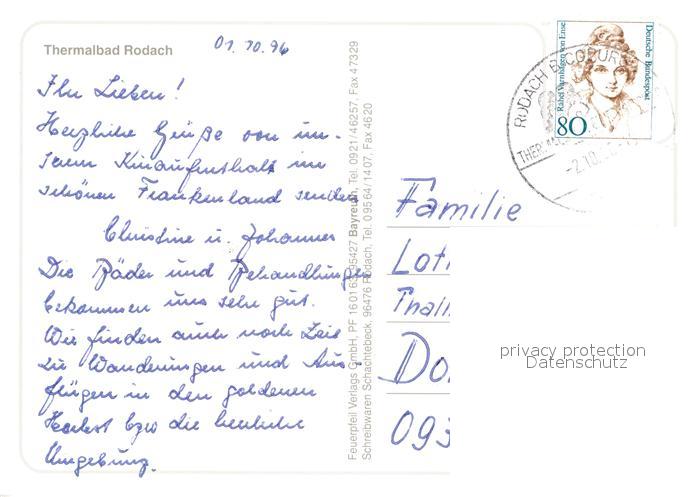 Thermalbad Rodach
01.10.96
Ihr Lieben!
Herzliche Grüße von un-
serm Kuraufenthalt im
schönen Frankenland senden
Christine u. Johannes
Die Bäder und Behandlungen
bekommen uns sehr gut.
Wir finden auch noch Zeit
zu Wanderungen und Aus-
flügen in den goldenen
Herbst bzw die herrliche
Umgebung.
Feuerpfeil Verlags GmbH, PF 16 01 63, 95427 Bayreuth, Tel. 0921/46257, Fax 47329
Schreibwaren Schachtebeck, 96476 Rodach, Tel. 09564/1407, Fax 4620
Deutsche Bundespost
Rahel Varnhagen von Ense
80
RODACH B COBURG
THERMAL
-2.10.
Familie
Lot
Thail
Do
093
privacy protection
Datenschutz